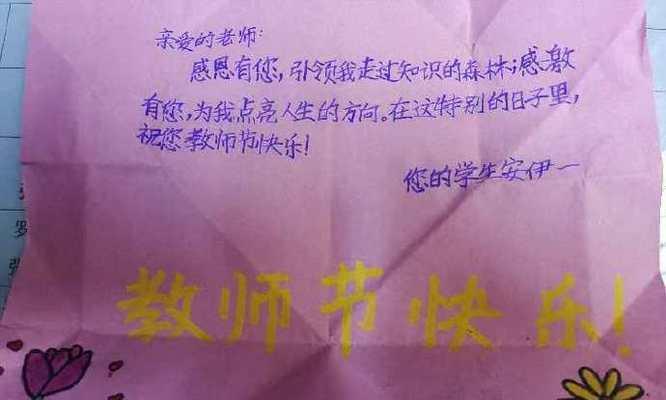 亲爱的老师:
感恩有您,引领我走过知识的森林;感激
有您,为我点亮人生的方向。在这特别的日子里,
祝您教师节快乐!
您的学生安伊一
教师节快乐!